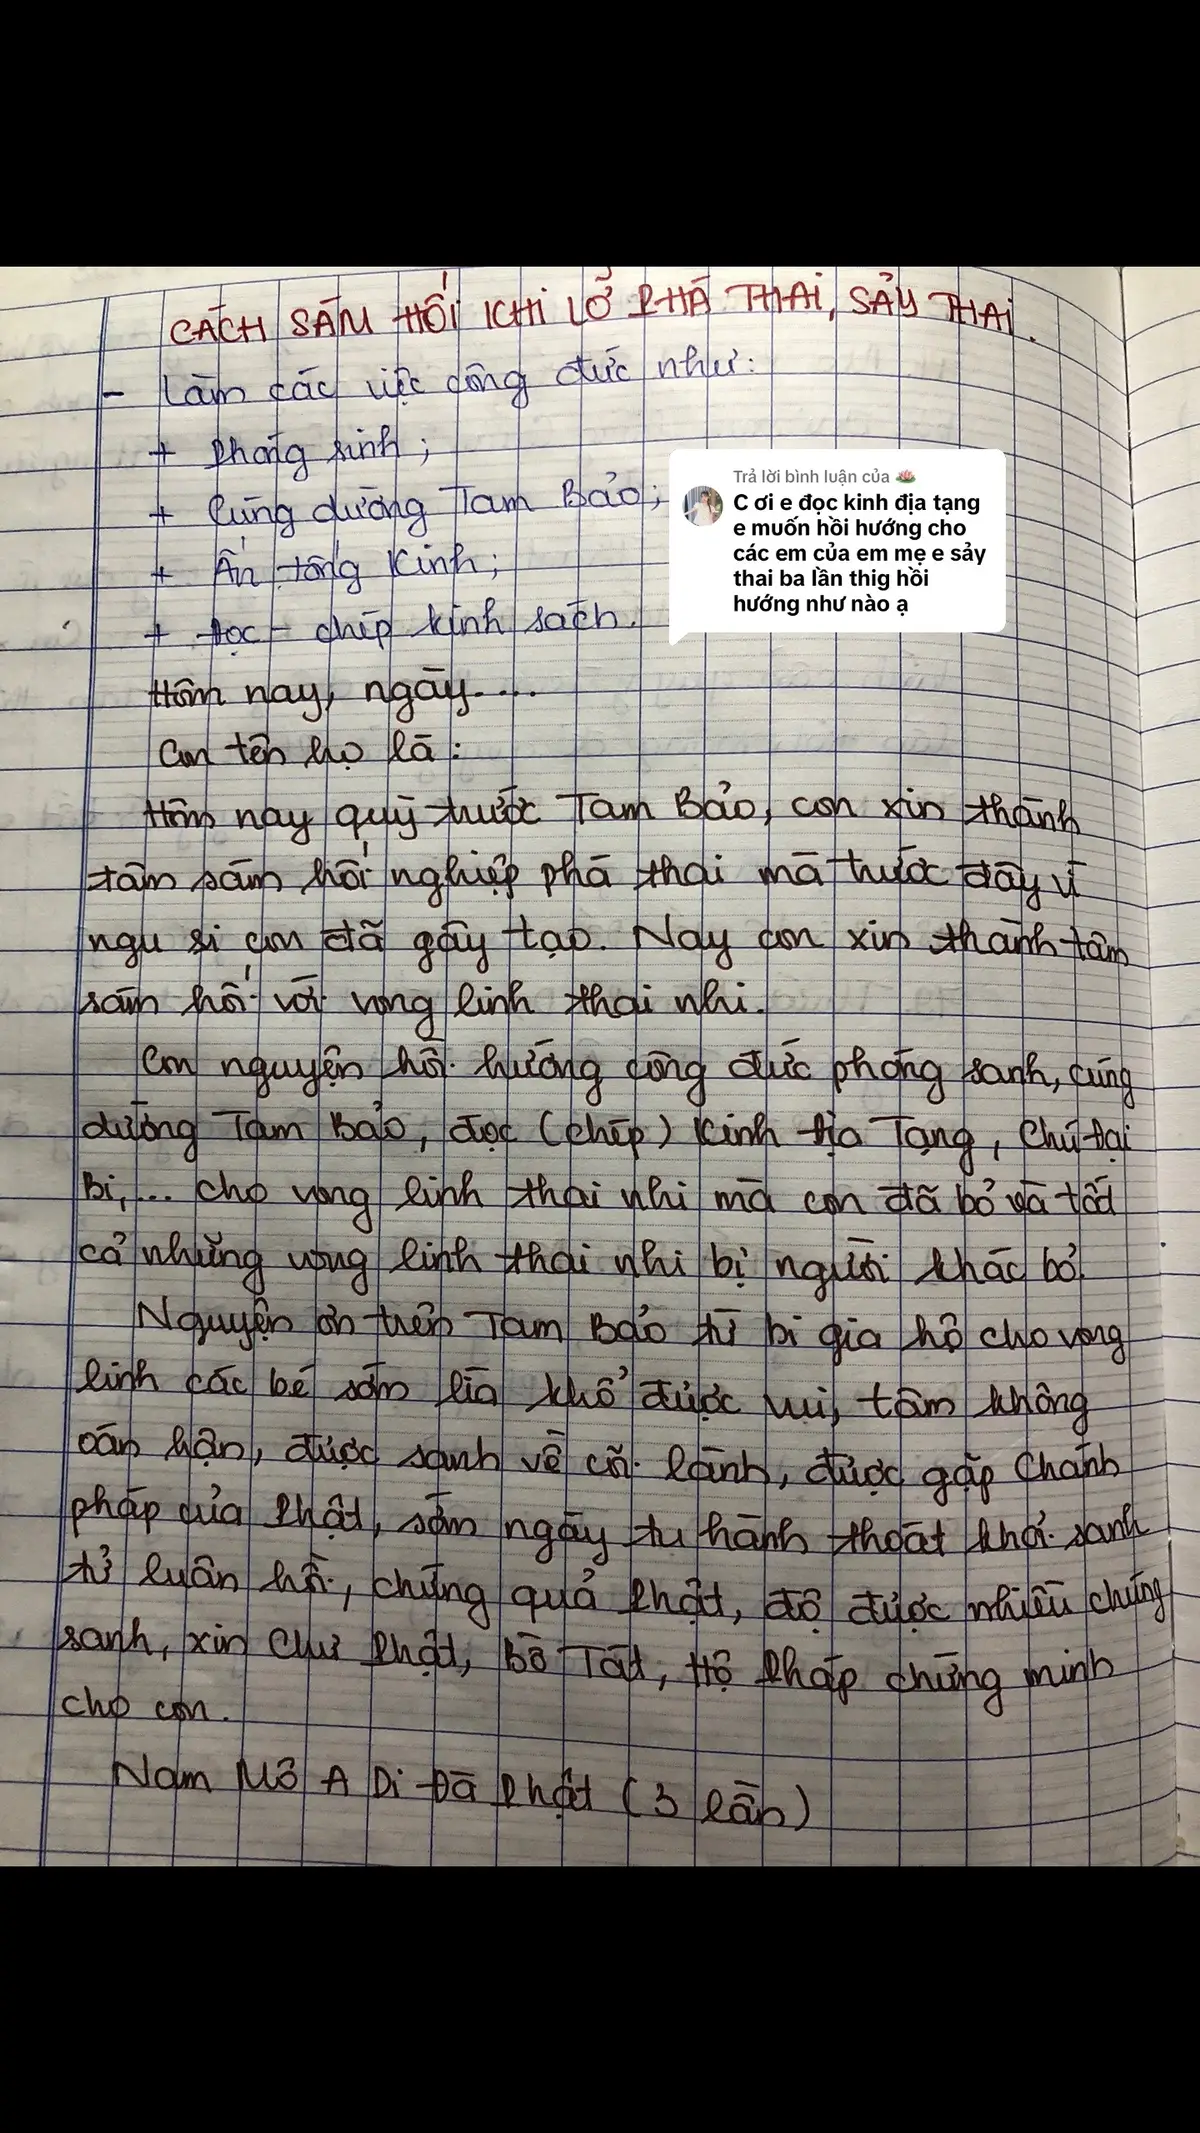 CÁCH SÁM HỐI KHI LỠ PHÁ THAI, SẢY THAI.
- Làm các việc công đức như:
+ Phóng sinh;
+ Cúng dường Tam Bảo;
+ Ấn tống Kinh;
+ Đọc - chép kinh sách.
Trả lời bình luận của 🪷
C ơi e đọc kinh địa tạng
e muốn hồi hướng cho
các em của em mẹ e sảy
thai ba lần thig hồi
hướng như nào ạ
Hôm nay, ngày....
Con tên họ là:
Hôm nay quỳ trước Tam Bảo, con xin thành
tâm sám hối nghiệp phá thai mà trước đây vì
ngu si con đã gây tạo. Nay con xin thành tâm
sám hối với vong linh thai nhi.
Con nguyện hồi hướng công đức phóng sanh, cúng
dường Tam Bảo, đọc (chép) Kinh Địa Tạng, Chú Đại
Bi,... cho vong linh thai nhi mà con đã bỏ và tất
cả những vong linh thai nhi bị người khác bỏ.
Nguyện ơn trên Tam Bảo từ bi gia hộ cho vong
linh các bé sớm lìa khổ được vui, tâm không
oán hận, được sanh về cõi lành, được gặp Chánh
pháp của Phật, sớm ngày tu hành thoát khỏi sanh
tử luân hồi, chứng quả Phật, độ được nhiều chúng
sanh, xin Chư Phật, Bồ Tát, Hộ Pháp chứng minh
cho con.
Nam Mô A Di Đà Phật (3 lần)